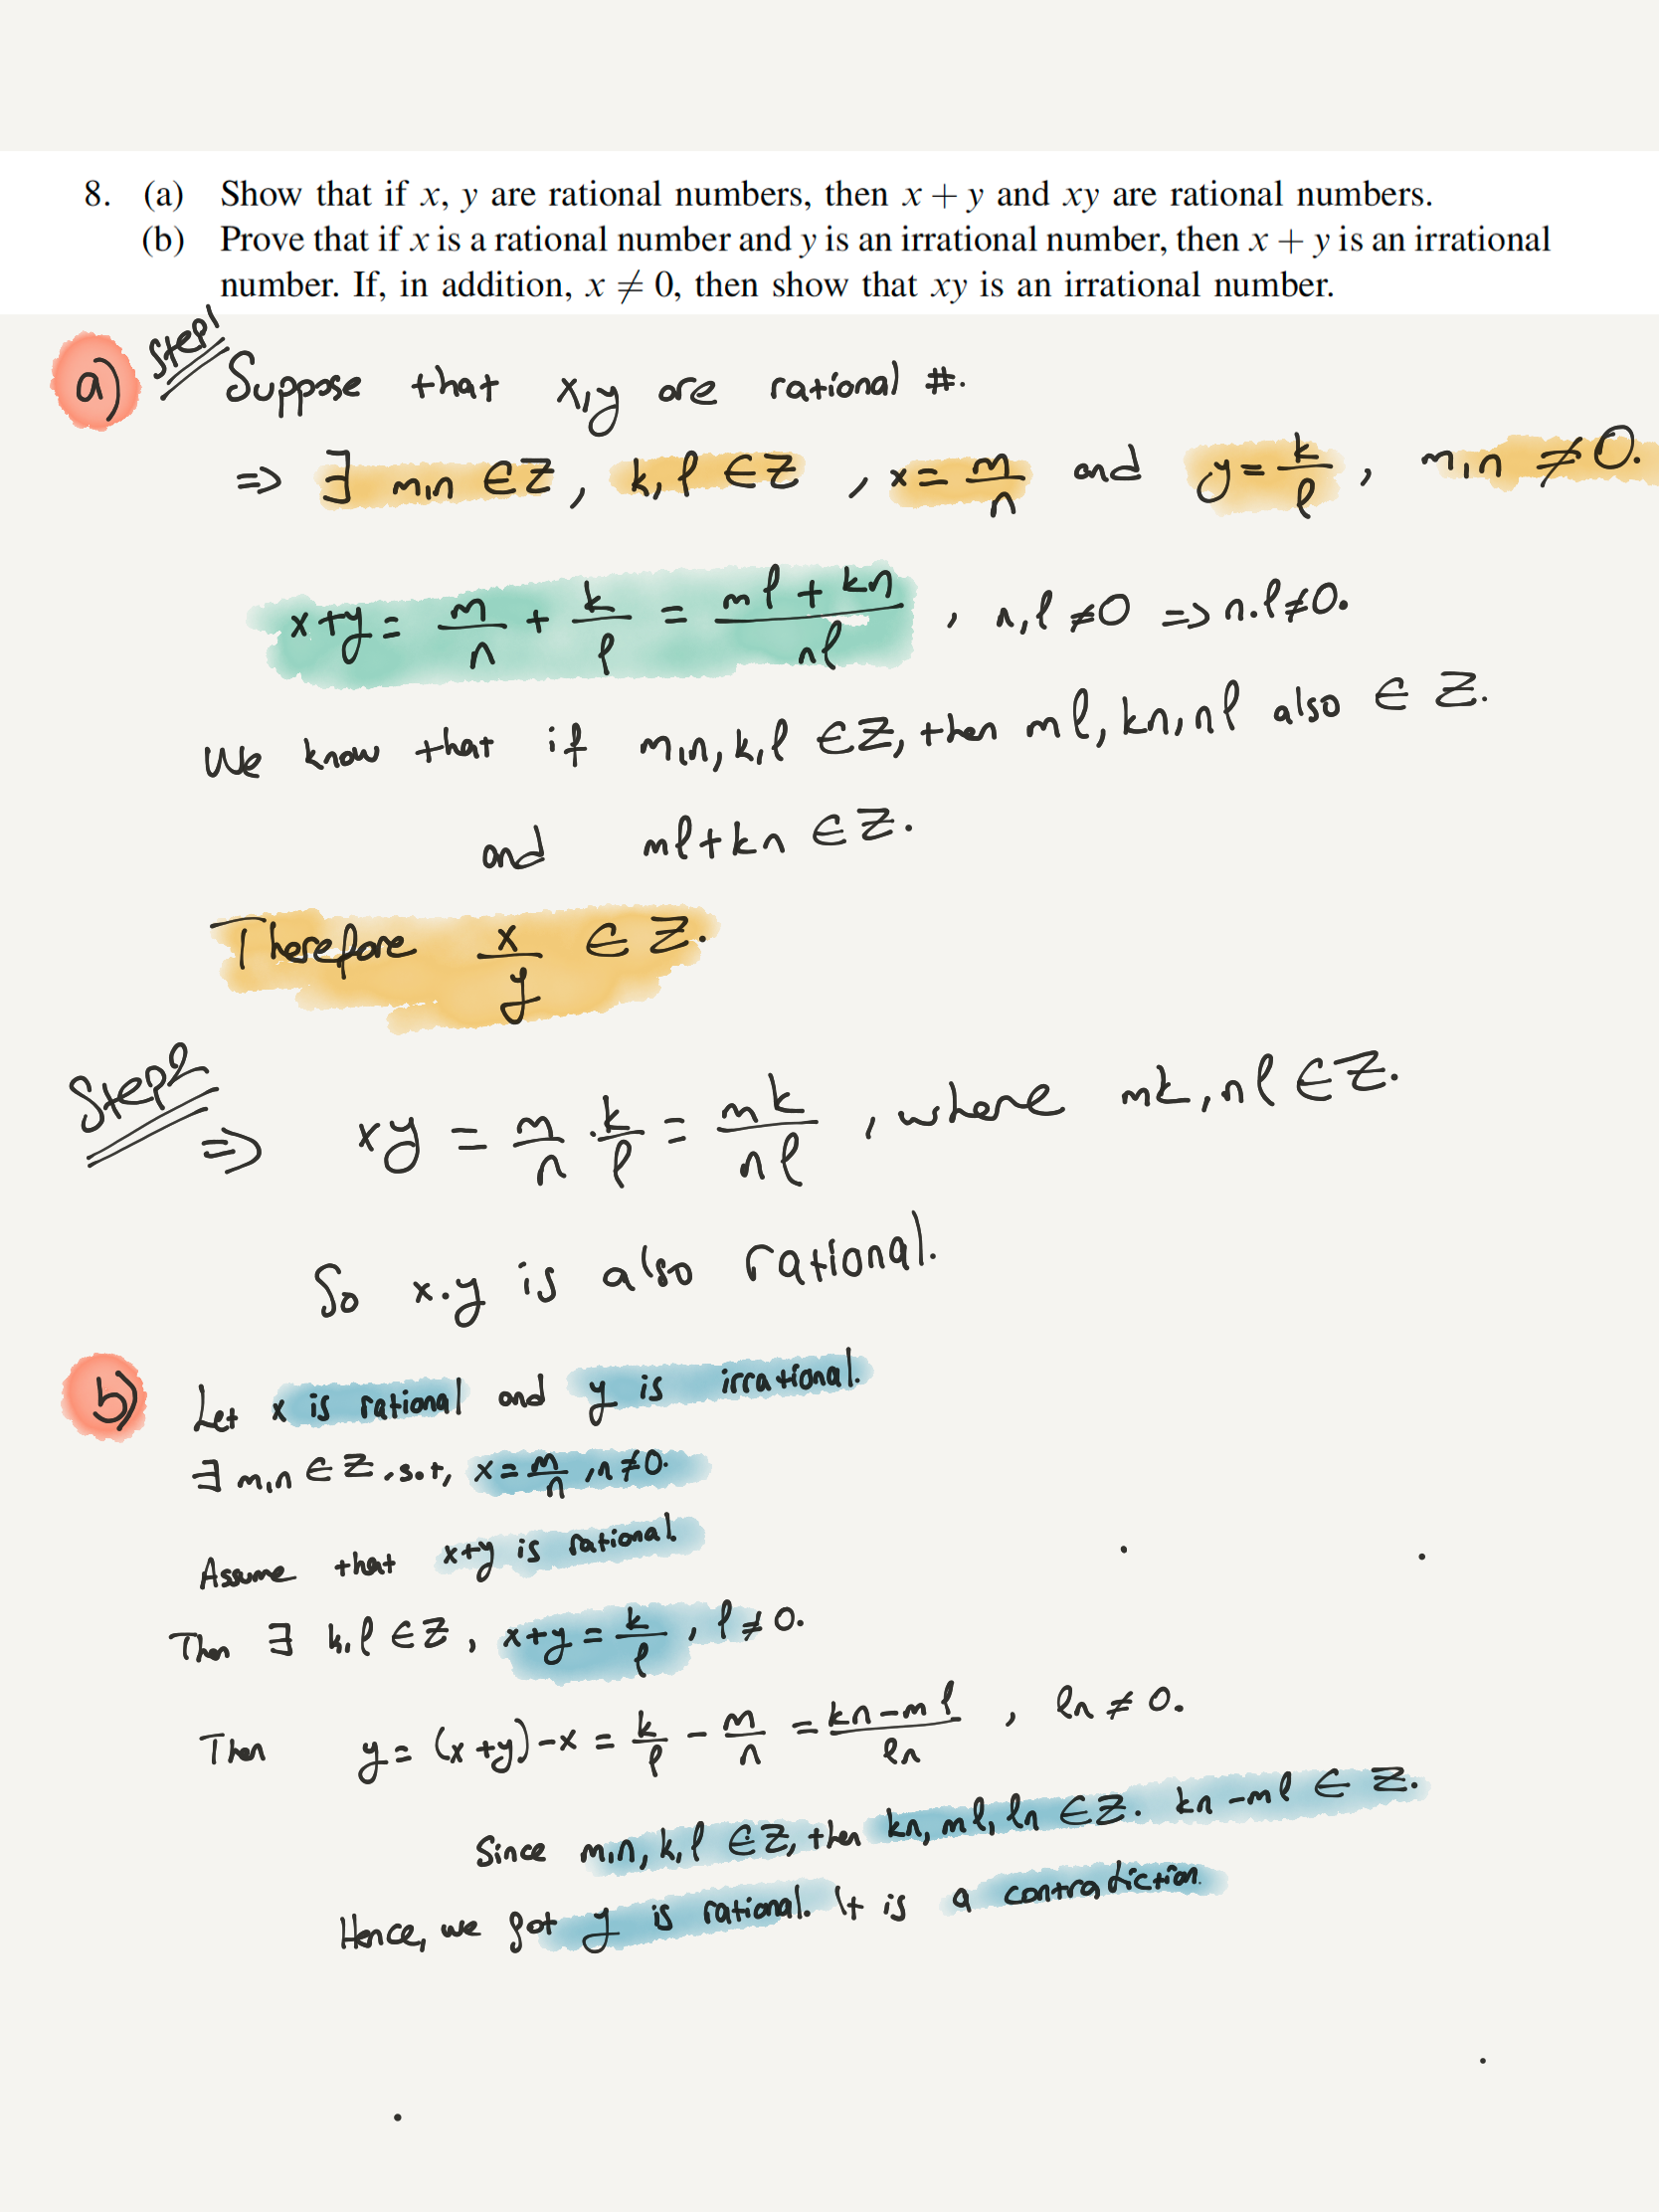 8. (a) Show that if x, y are rational numbers, then x + y and xy are rational numbers.
(b) Prove that if x is a rational number and y is an irrational number, then x + y is an irrational
number. If, in addition, x ≠ 0, then show that xy is an irrational number.
a) Step1 Suppose that x,y are rational #.
=> ∃ m,n ∈ Z, k, l ∈ Z, x = m/n and y = k/l, m,n ≠ 0.
x+y = m/n + k/l = (ml + kn)/nl, n,l ≠ 0 => n.l ≠ 0.
We know that if m,n, k,l ∈ Z, then ml, kn, nl also ∈ Z.
and ml+kn ∈ Z.
Therefore x/y ∈ Z.
Step2 => xy = m/n . k/l = mk/nl, where mk, nl ∈ Z.
So x.y is also rational.
b) Let x is rational and y is irrational.
∃ m,n ∈ Z, s.t, x = m/n, n ≠ 0.
Assume that x+y is rational.
Then ∃ k,l ∈ Z, x+y = k/l, l ≠ 0.
Then y = (x+y)-x = k/l - m/n = (kn-ml)/ln, ln ≠ 0.
Since m,n, k,l ∈ Z, then kn, ml, ln ∈ Z. kn-ml ∈ Z.
Hence, we got y is rational. It is a contradiction.